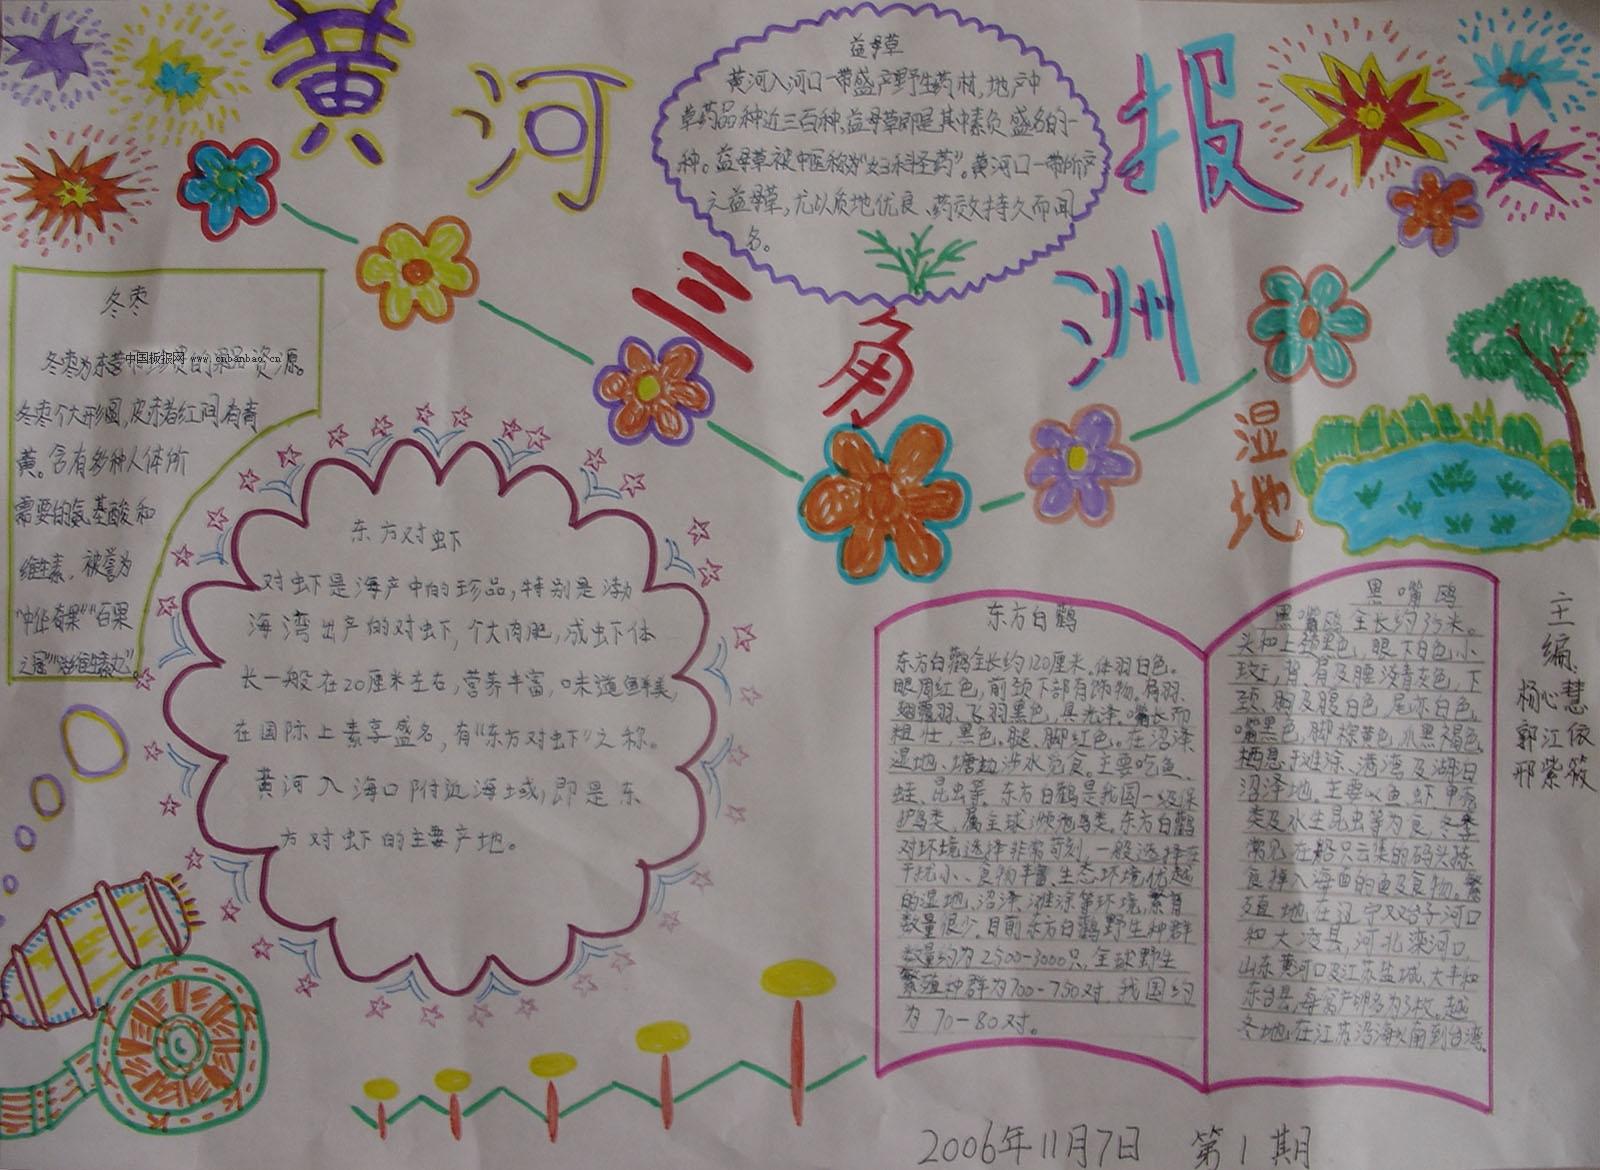 黄河三角洲报
益母草
黄河入河口一带盛产野生药材,地产中
草药品种近三百种,益母草即是其中素负盛名的一
种。益母草被中医称为"妇科圣药"。黄河口一带所产
之益母草,尤以质地优良、药效持久而闻
名。
冬枣
冬枣为东营市珍贵的果品资源。
中国板报网 www.cnbanbao.cn
冬枣个大形圆,皮赤者红间有青
黄。含有多种人体所
需要的氨基酸和
维生素,被誉为
"中华奇果""百果
之冠""活维生素丸"。
东方对虾
对虾是海产中的珍品,特别是渤
海湾出产的对虾,个大肉肥,成虾体
长一般在20厘米左右,营养丰富,味道鲜美,
在国际上素享盛名,有"东方对虾"之称。
黄河入海口附近海域,即是东
方对虾的主要产地。
湿地
东方白鹳
东方白鹳全长约120厘米。体羽白色。
眼周红色,前颈下部有饰物,肩羽、
翅覆羽、飞羽黑色,具光泽。嘴长而
粗壮,黑色。腿、脚红色。在沼泽
湿地、塘边涉水觅食。主要吃鱼、
蛙、昆虫等。东方白鹳是我国一级保
护鸟类,属全球濒危鸟类。东方白鹳
对环境选择非常苛刻,一般选择在
干扰小、食物丰富、生态环境优越
的湿地、沼泽、滩涂等环境,繁育
数量很少。目前东方白鹳野生种群
数量约为2500-3000只,全球野生
繁殖种群为700-750对,我国约
为70-80对。
黑嘴鸥
黑嘴鸥全长约33米。
头和上颈黑色,眼下白色,小
斑;背、肩及腰淡青灰色,下
颈、胸及腹白色,尾亦白色,
嘴黑色,脚棕黄色,爪黑褐色。
栖息于滩涂、港湾及湖泊
沼泽地。主要以鱼、虾、甲壳
类及水生昆虫等为食,冬季
常见在船只云集的码头拣
食掉入海面的鱼及食物。繁
殖地在辽宁双台子河口
和大凌县,河北滦河口,
山东黄河口及江苏盐城、大丰和
东台县,每窝产卵多为3枚。越
冬地:在江苏沿海以南到台湾。
主编:
杨心慧
郭江依
邢紫筱
2006年11月7日 第1期